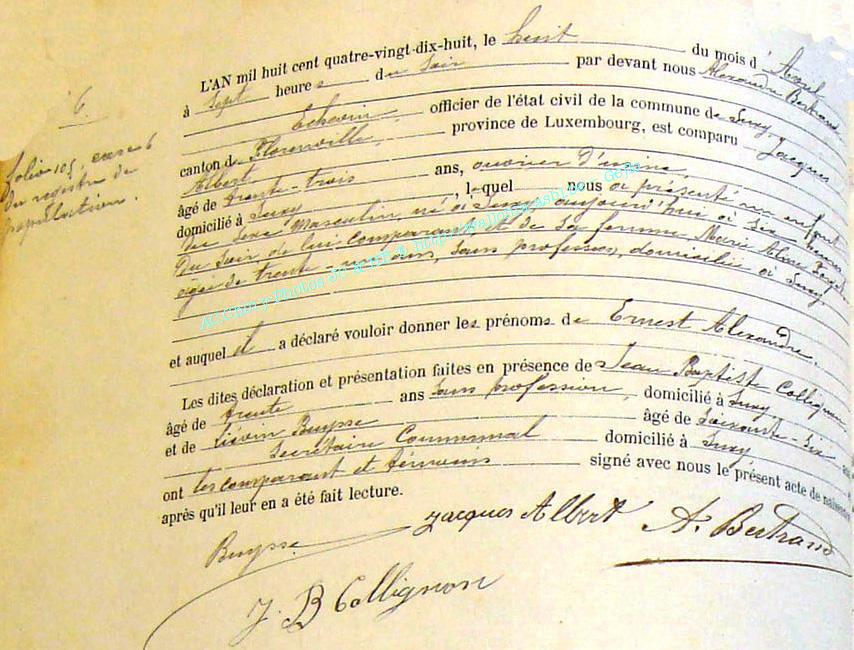 6.
folio 105, case 6
du registre de
population.
L'AN mil huit cent quatre-vingt-dix-huit, le huit du mois d'Avril
à Sept heures du Soir par devant nous Alexandre Bertrand
Echevin, officier de l'état civil de la commune de Suxy,
canton de Florenville, province de Luxembourg, est comparu Jacques
Albert
âgé de trente-trois ans, ouvrier d'usine,
domicilié à Suxy, lequel nous a présenté un enfant
du sexe Masculin, né à Suxy, aujourd'hui à six heures
du soir, de lui comparant et de sa femme Marie
âgée de trente ans, sans profession, domiciliée à Suxy
et auquel il a déclaré vouloir donner les prénoms de Ernest Alexandre.
Les dites déclaration et présentation faites en présence de Jean Baptiste Collignon
âgé de trente ans sans profession, domicilié à Suxy
et de Liévin Buysse âgé de Soixante-Six
Secrétaire Communal domicilié à Suxy
ont les comparant et témoins signé avec nous le présent acte de naissance
après qu'il leur en a été fait lecture.
Buysse Jacques Albert A. Bertrand
J. B Collignon